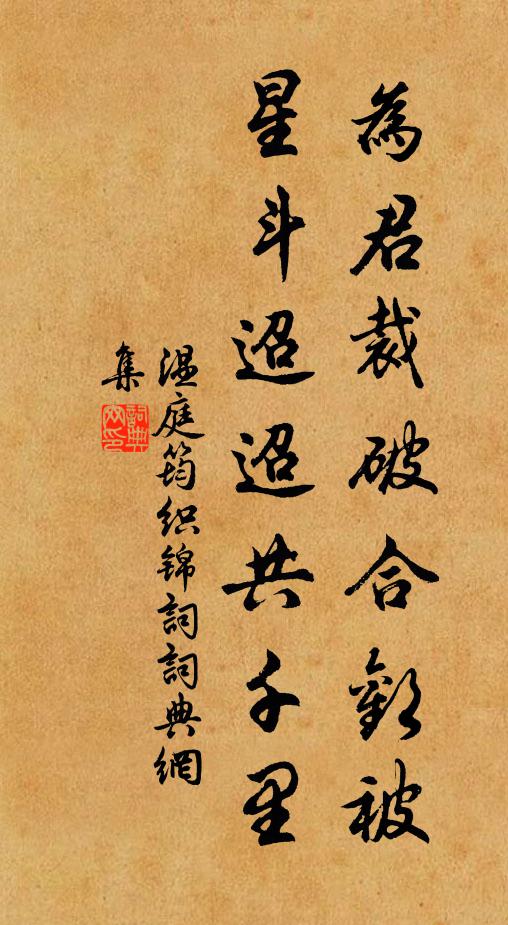 為君裁破合歡被
星斗迢迢共千里
溫庭筠织锦詞詞典網
集
詞典網印